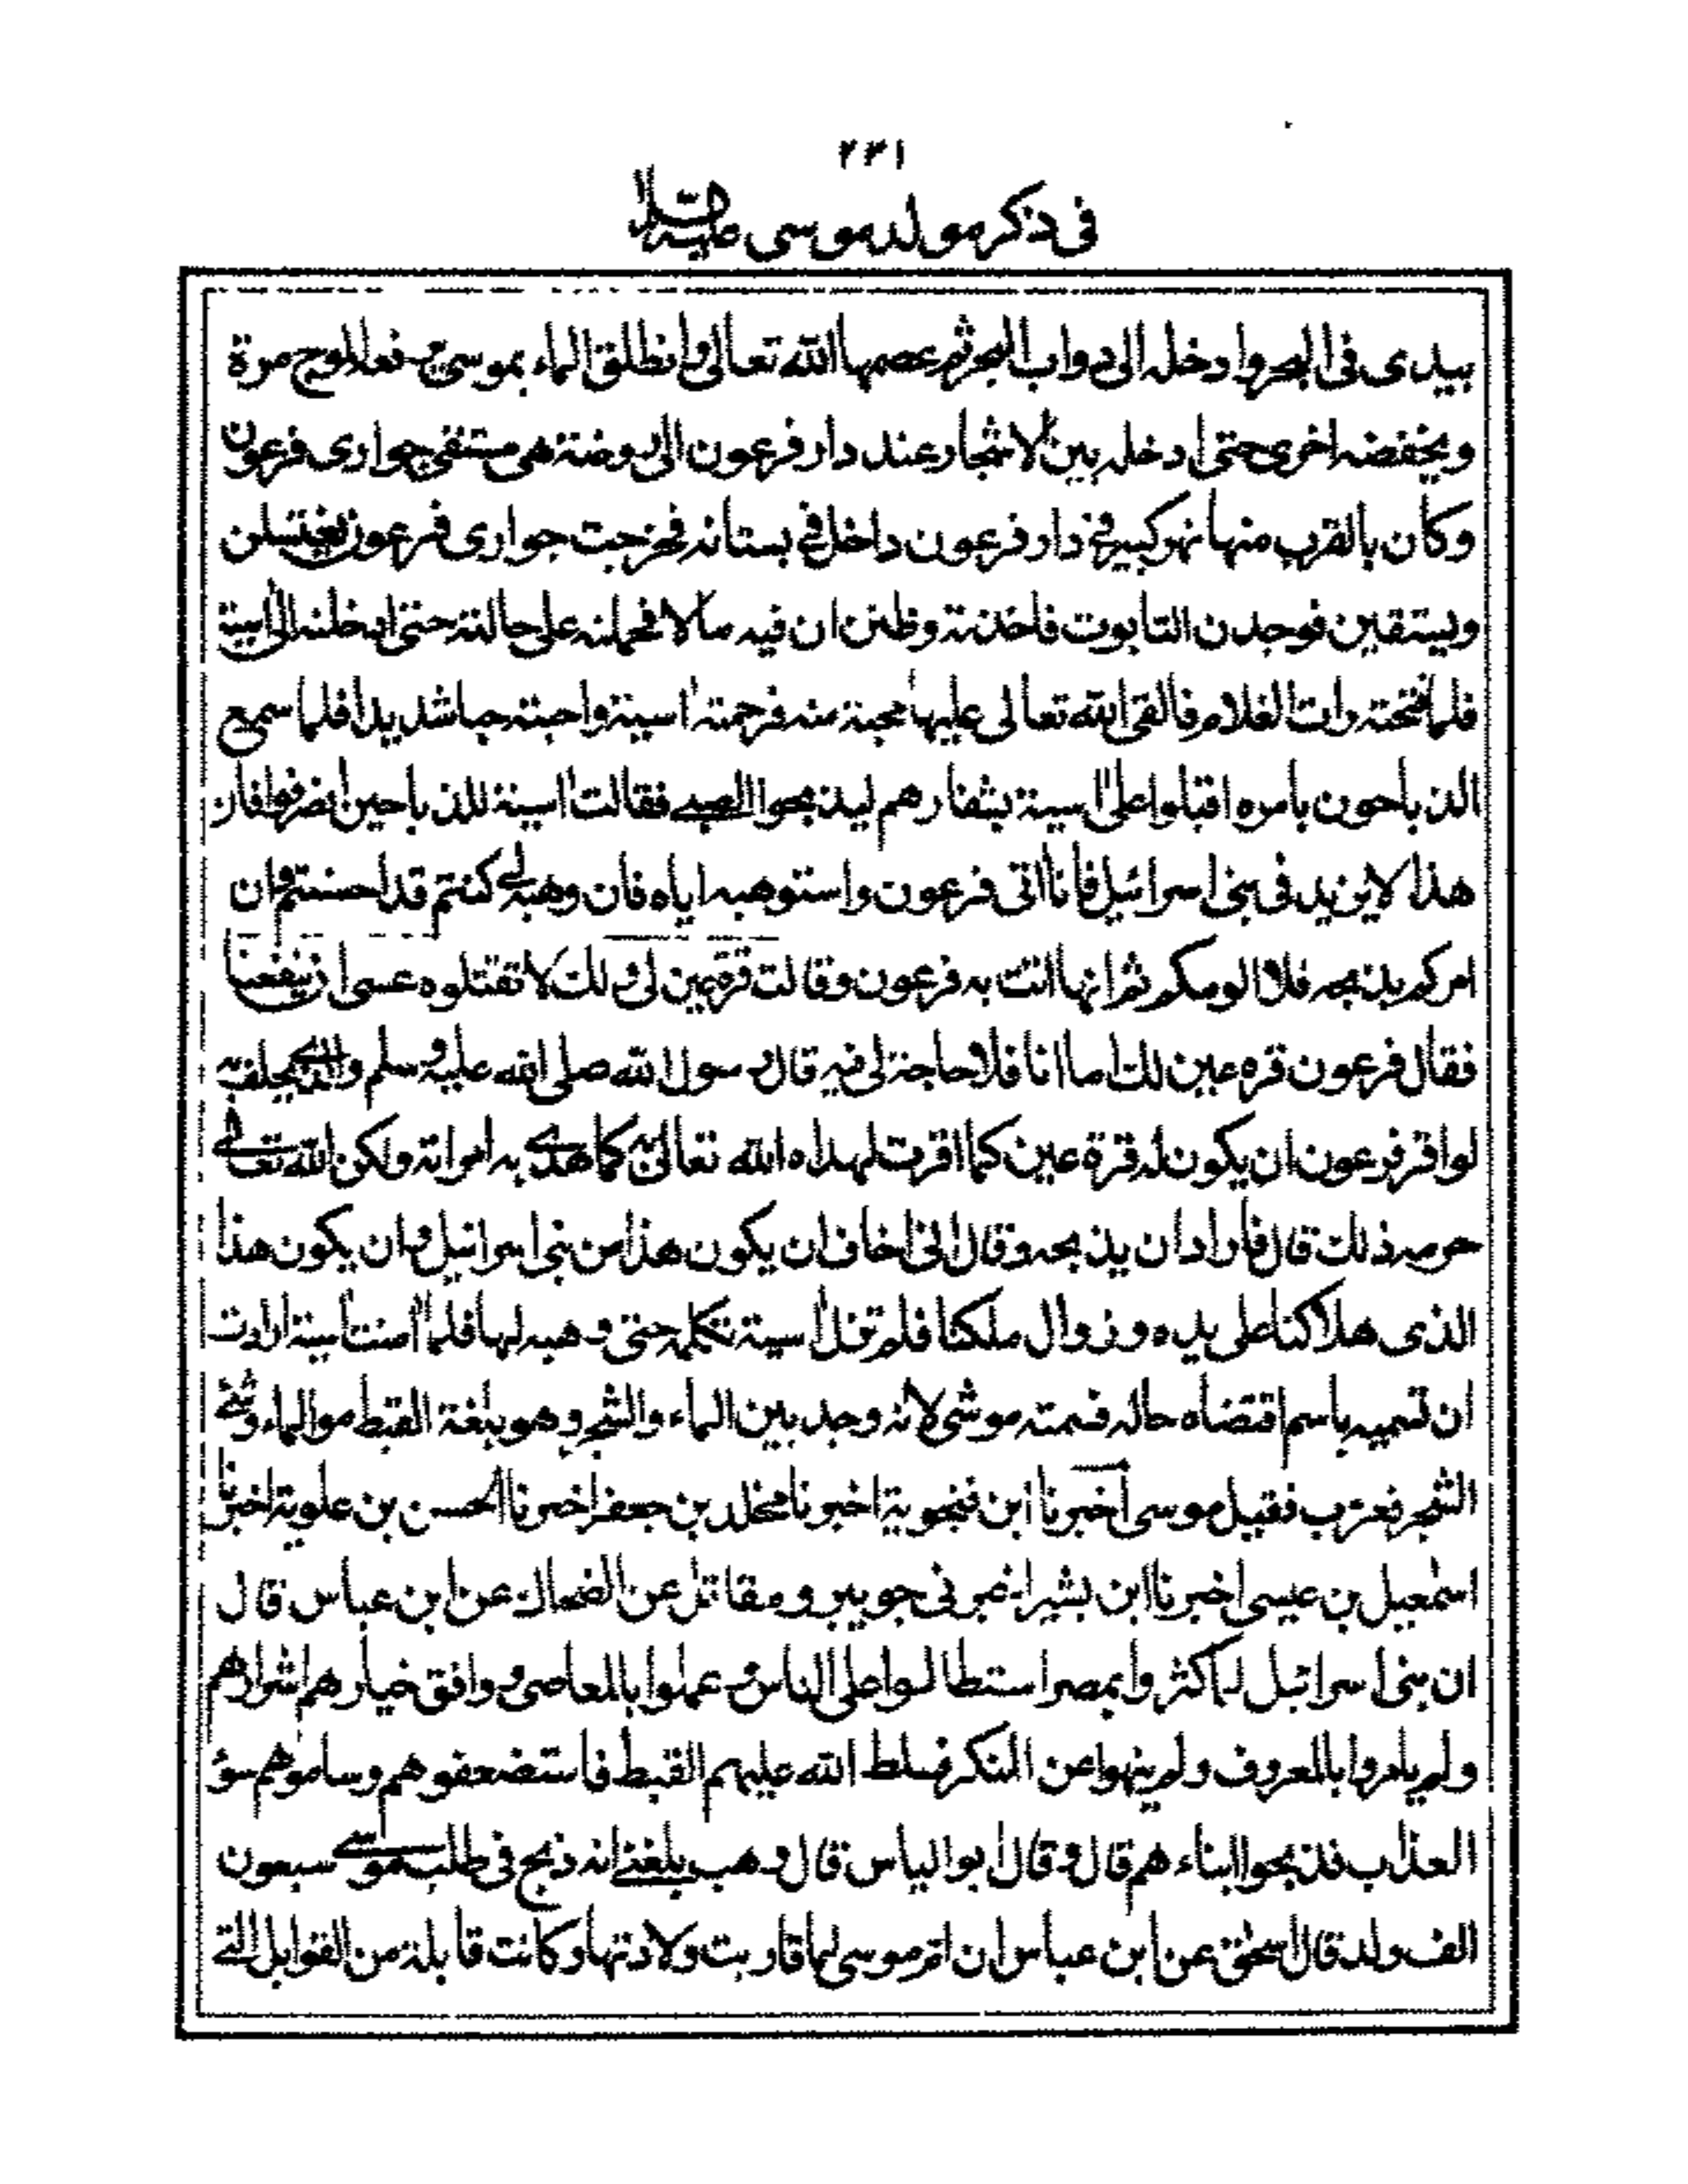 ٢٣١
فى ذكر مولد موسى عليه السلام
بيدى فى البحر وادخله الى دواب البحر ثم عصمها الله تعالى وانطلق الماء بموسى يرفعه الموج مرة
ويخفضه اخرى حتى ادخله بين الاشجار عند دار فرعون الى روضة هى مستقى جوارى فرعون
وكان بالقرب منها نهر كبير فى دار فرعون داخل فى بستانه فخرجت جوارى فرعون يغتسلن
ويستقين فوجدن التابوت فاخذنه وظنن ان فيه مالا فحملنه على حالته حتى ادخلنه الى اسية
فلما فتحته رات الغلام فالقى الله تعالى عليها محبة منه فرحمته اسية واحبته حبا شديدا فلما سمع
الذباحون بامره اقبلوا على اسية بشفارهم ليذبحوا الصبى فقالت اسية للذباحين انصرفوا فان
هذا لا يزيد فى بنى اسرائيل فانا اتى فرعون واستوهبه اياه فان وهبه لى كنتم قد احسنتم وان
امركم بذبحه فلا الومكم ثم انها اتت به فرعون وقالت قرة عين لى ولك لا تقتلوه عسى ان ينفعنا
فقال فرعون قره عين لك اما انا فلا حاجة لى فيه قال رسول الله صلى الله عليه وسلم والذى يحلف به
لو اقر فرعون ان يكون له قرة عين كما اقرت لهداه الله تعالى به كما هدى به امراته ولكن الله تعالى
حرمه ذلك قال فاراد ان يذبحه وقال انى اخاف ان يكون هذا من بنى اسرائيل وان يكون هذا
الذى هلاكنا على يده وزوال ملكنا فلم تزل اسية تكلمه حتى وهبه لها فلما امنت اسية ارادت
ان تسميه باسم اقتضاه حاله فسمته موشى لانه وجد بين الماء والشجر وهو بلغة القبط مو الماء وشى
الشجر فعرب فقيل موسى اخبرنا ابن فنجوية اخبرنا مخلد بن جعفر اخبرنا الحسن بن علوية اخبرنا
اسمٰعيل بن عيسى اخبرنا ابن بشير اخبرنى جويبر ومقاتل عن الضحاك عن ابن عباس قال
ان بنى اسرائيل لما كثروا بمصر استطالوا على الناس وعملوا بالمعاصى ووافق خيارهم اشرارهم
ولم يامروا بالمعروف ولم ينهوا عن المنكر فسلط الله عليهم القبط فاستضعفوهم وساموهم سؤ
العذاب فذبحوا ابناء هم قال وقال ابو الياس قال وهب بلغنى انه ذبح فى طلب موسى سبعون
الف ولد قال اسحق عن ابن عباس ان ام موسى لما قاربت ولادتها وكانت قابلة من القوابل التى